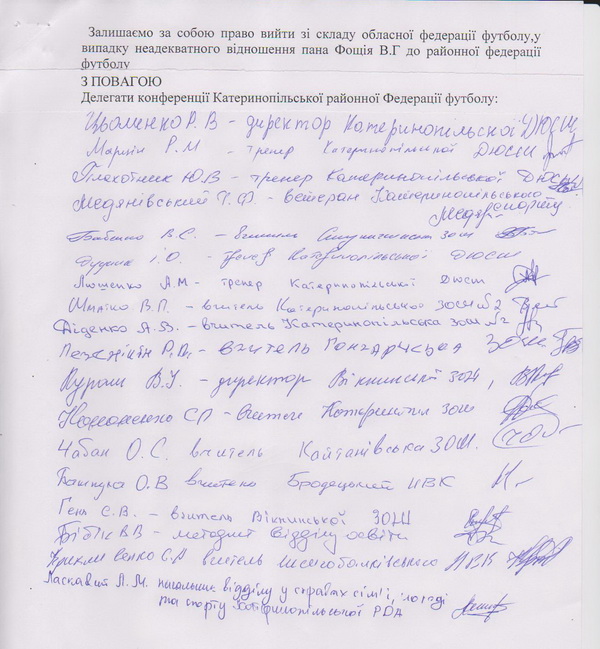 Залишаємо за собою право вийти зі складу обласної федерації футболу,у
випадку неадекватного відношення пана Фощія В.Г до районної федерації
футболу
З ПОВАГОЮ
Делегати конференції Катеринопільської районної Федерації футболу:
Цьоменко Р.В - директор Катеринопільської ДЮСШ
Р.М - тренер Катеринопільської ДЮСШ
Плахотник Ю.В - тренер Катеринопільської ДЮСШ
Медянівський Г.Ф. - ветеран Катеринопільського
спорту
Бабенко В.С. - вчитель ЗОШ
І.О. - Катеринопільської ДЮСШ
Люшенко А.М - тренер Катеринопільської ДЮСШ
В.П. - вчитель Катеринопільської ЗОШ №2
Діденко А.В. - вчитель Катеринопільська ЗОШ №2
- вчитель Гончариська ЗОШ
В.У. - директор Вікнинської ЗОШ,
Кононенко СП - вчитель Катеринопіл ЗОШ
Чабан О.С. вчитель Кайтанівська ЗОШ.
О.В вчитель Бродецький НВК
Гень С.В. - вчитель Вікнинської ЗОШ
Бібік В.В - методист відділу освіти
вчитель НВК
Ласкавий Л.М. начальник відділу у справах сім'ї, молоді
та спорту Катеринопільської РДА